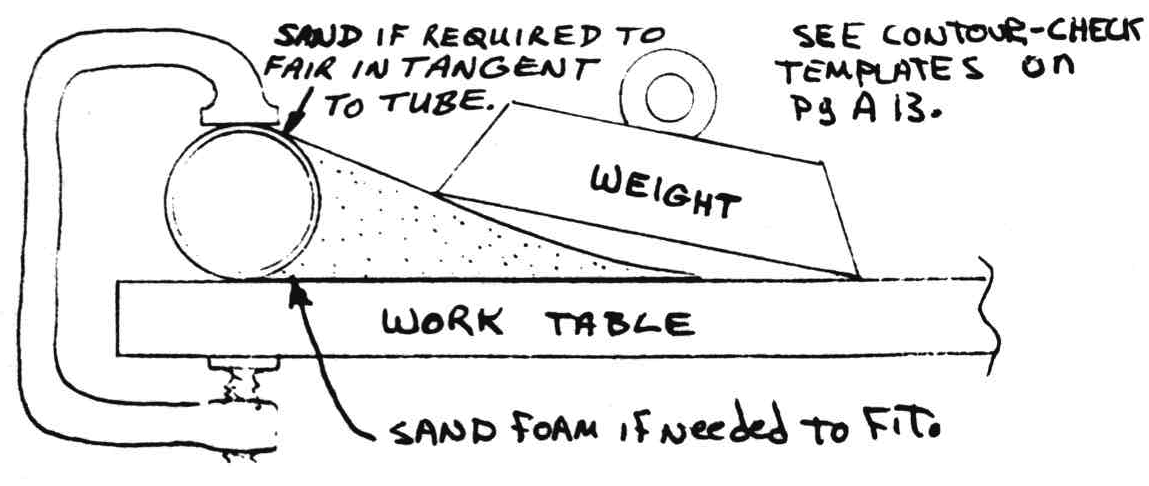 SAND IF REQUIRED TO
FAIR IN TANGENT
TO TUBE.
SEE CONTOUR-CHECK
TEMPLATES on
pg A 13.
WEIGHT
WORK TABLE
SAND FOAM IF Needed to FiT.